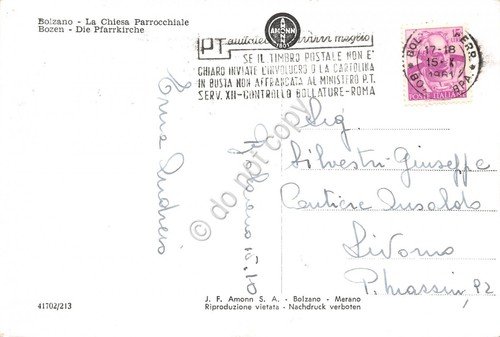 Bolzano - La Chiesa Parrocchiale
Bozen - Die Pfarrkirche
AMONN
1802
PT aiutateci a servirvi meglio
SE IL TIMBRO POSTALE NON E'
CHIARO INVIATE L'INVOLUCRO O LA CARTOLINA
IN BUSTA NON AFFRANCATA AL MINISTERO P.T.
SERV. XII-CONTROLLO BOLLATURE-ROMA
17-18
15-
1961
POSTE ITALIANE
Sig.
Silvestri Giuseppe
Cantiere Ansaldo
Livorno
Bolzano 15.10
do not copy
41702/213
J. F. Amonn S. A. - Bolzano - Merano
Riproduzione vietata - Nachdruck verboten